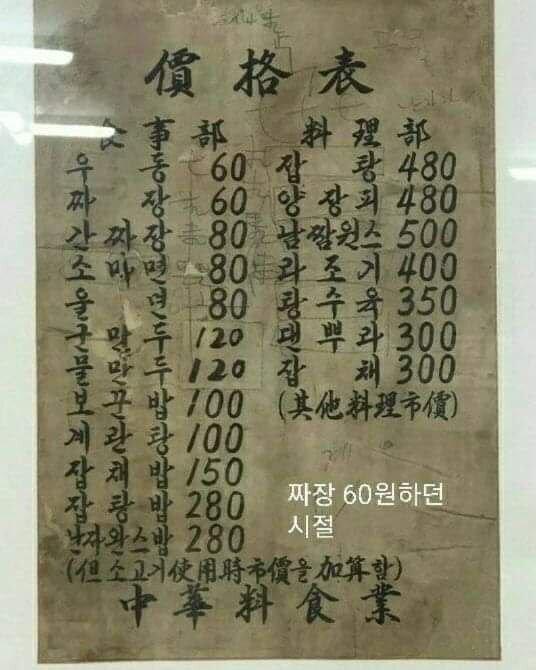 價格表
食事部
우동 60
짜장 60
간짜장 80
소마면 80
울면 80
군만두 120
물만두 120
보끈밥 100
계란탕 100
잡채밥 150
잡탕밥 280
난자완스밥 280
(但소고기使用時市價을加算함)
料理部
잡탕 480
양장피 480
남짬원스 500
과조기 400
탕수육 350
덴뿌라 300
잡채 300
(其他料理市價)
中華料食業
짜장 60원하던
시절